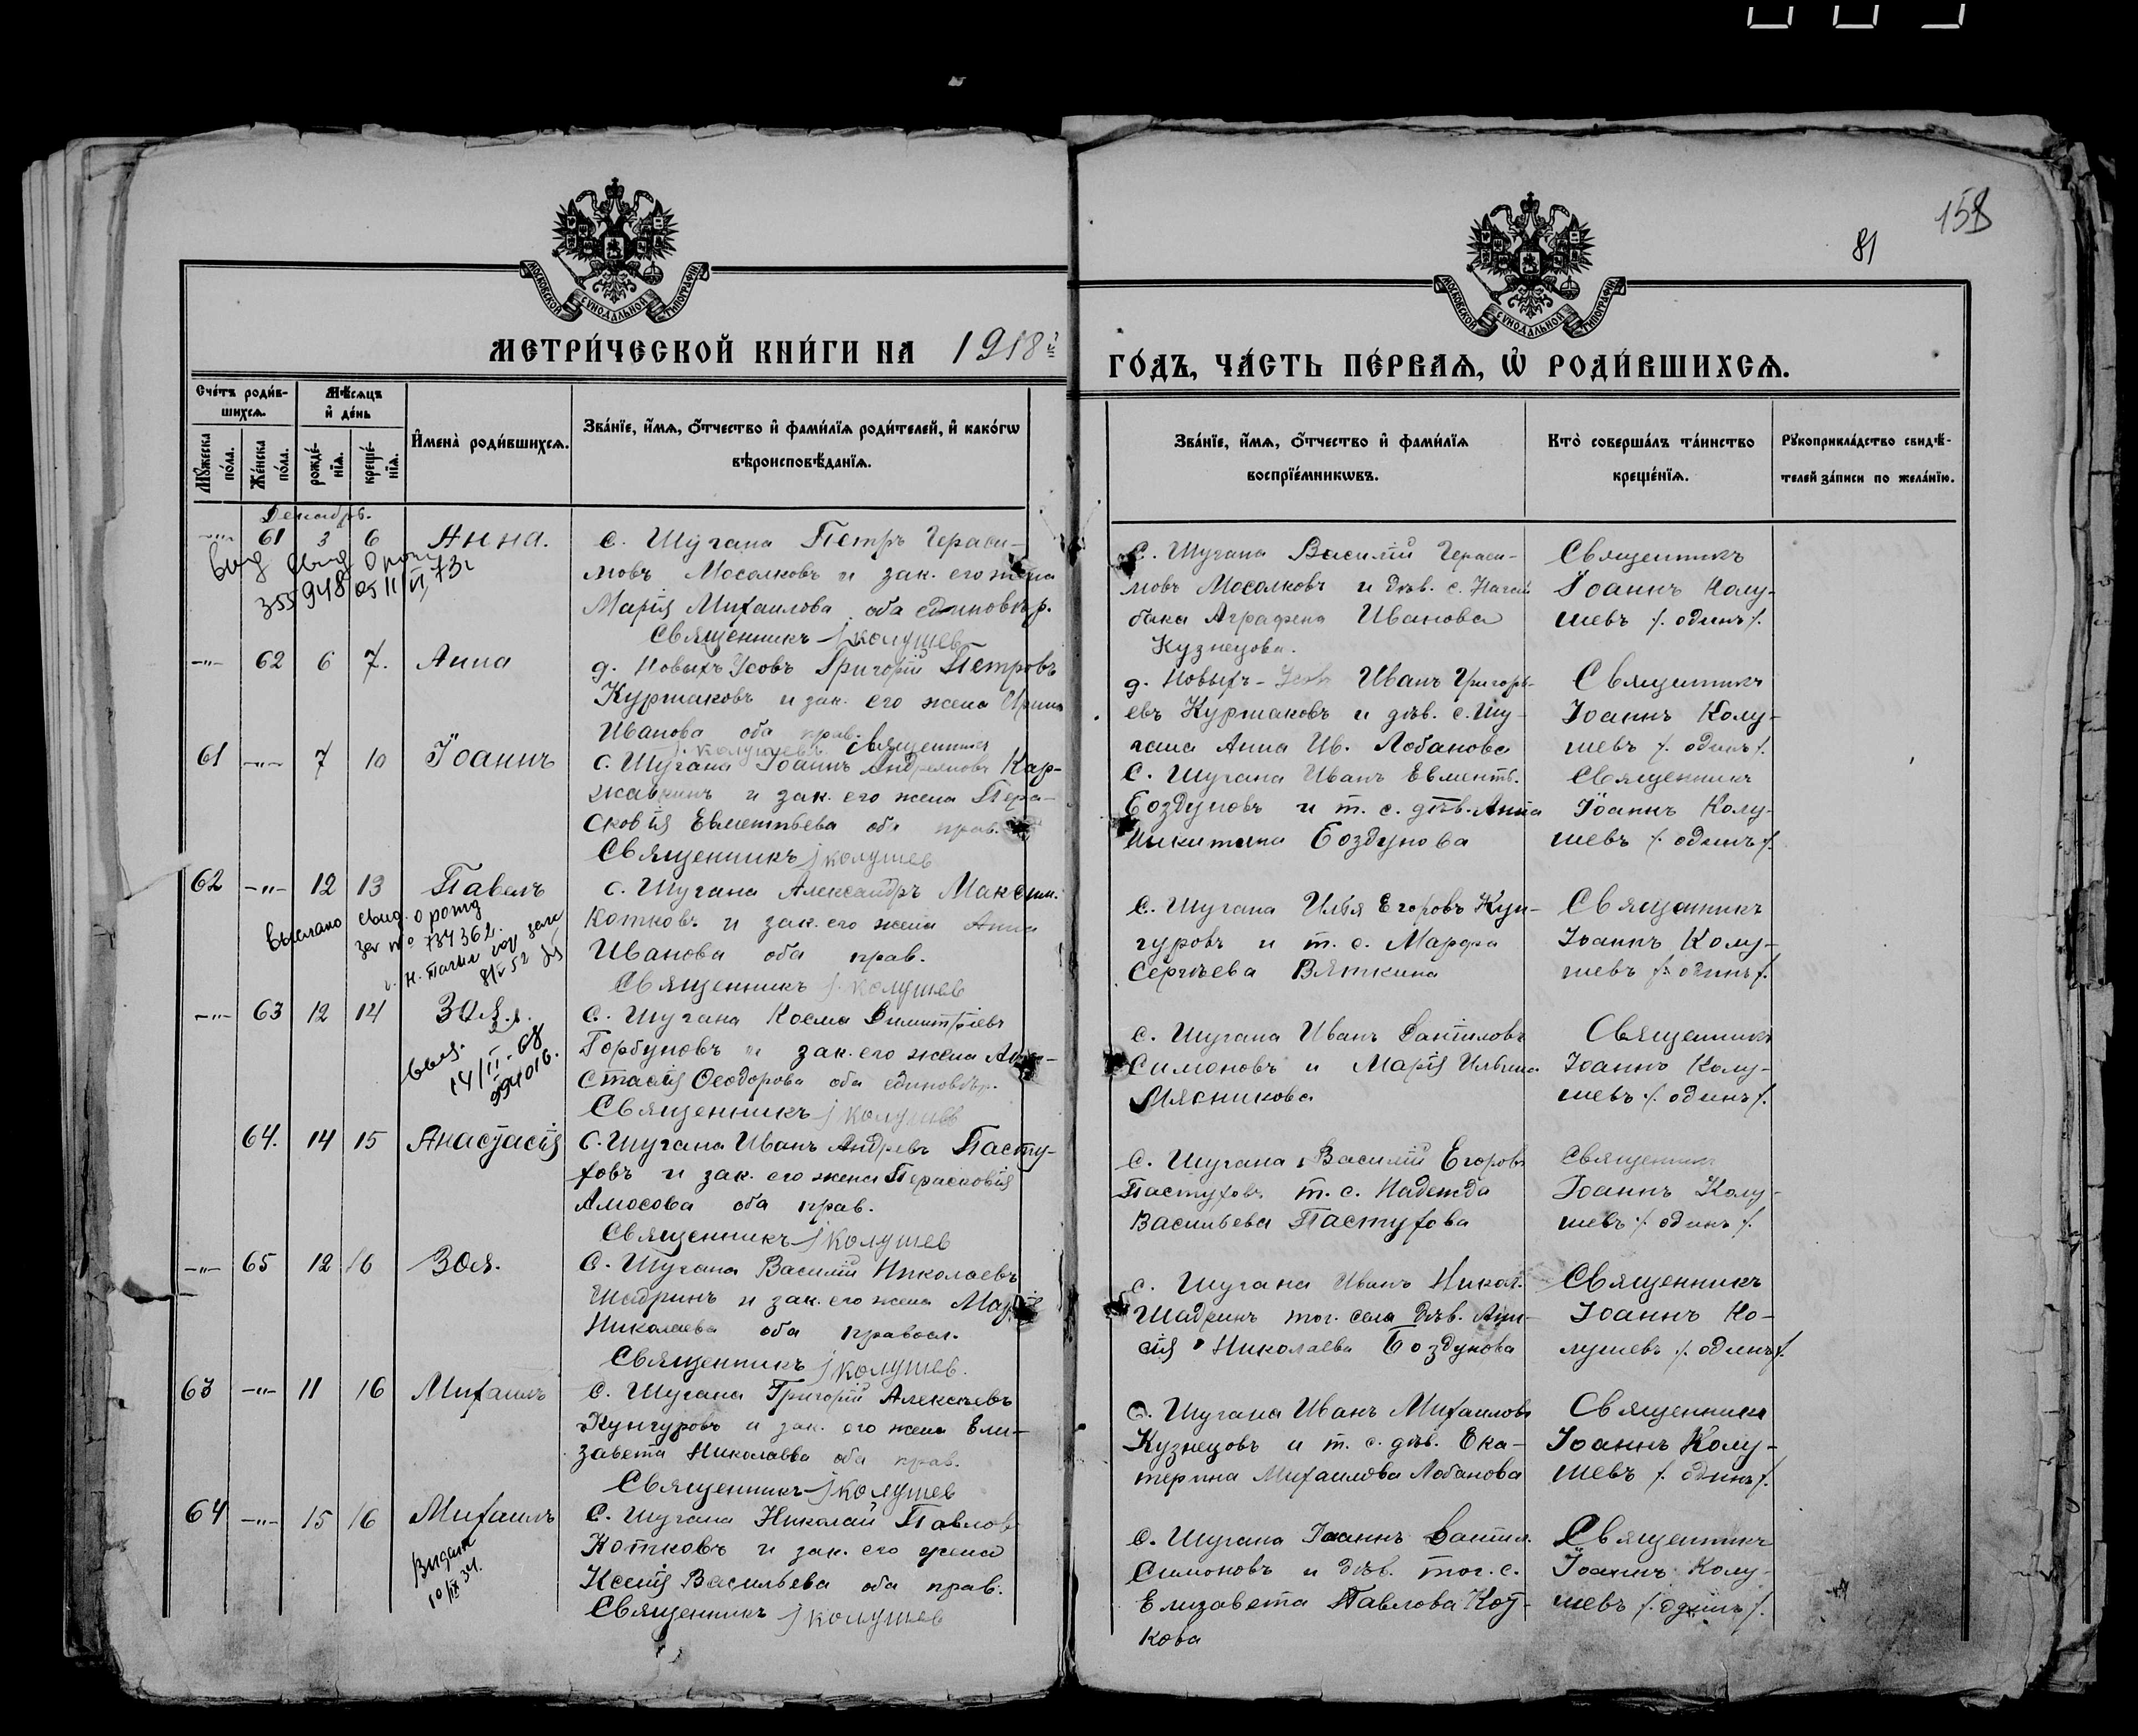 158
81
МОСКОВСКОЙ СѴНОДАЛЬНОЙ ТИПОГРАФІИ
МОСКОВСКОЙ СѴНОДАЛЬНОЙ ТИПОГРАФІИ
МЕТРИ́ЧЕСКОЙ КНИ́ГИ НА 1918й
ГО́ДЪ, ЧА́СТЬ ПЕ́РВАѦ, Ѡ҆ РОДИ́ВШИХСѦ.
Сче́тъ роди́в-
шихсѧ.
Мѣ́сѧцъ
и҆ де́нь
Мꙋ́жеска
по́ла.
Же́нска
по́ла.
рожде́-
нїѧ.
креще́-
нїѧ.
И҆мена̀ роди́вшихсѧ.
Зва́нїе, и҆́мѧ, ѻ҆́тчество и҆ фами́лїѧ роди́телей, и҆ како́гѡ
вѣроисповѣ́данїѧ.
Зва́нїе, и҆́мѧ, ѻ҆́тчество и҆ фами́лїѧ
воспрїе́мникѡвъ.
Кто̀ соверша́лъ та́инство
креще́нїѧ.
Рꙋкоприкла́дство свидѣ́-
телей за́писи по жела́нїю.
Декабрь.
-"- 61 3 6 Анна.
выд свид о рожд
355948 05 11/VI 73г
с. Шугана Петръ Гераси-
мовъ Мосалковъ и зак. его жена
Марія Михаилова оба единовѣр.
Священникъ І Колушев
С. Шугана Василій Гераси-
мовъ Мосалковъ и дѣв. с. Нагай
бака Аграфена Иванова
Кузнецова.
Священникъ
Іоаннъ Колу-
шевъ /. одинъ /.
-"- 62 6 7. Анна
д. Новыхъ Усовъ Григорій Петровъ
Куршаковъ и зак. его жена Ирина
Иванова оба прав.
І. Колушевъ Священникъ
д. Новыхъ-Усов Иванъ Григорь-
евъ Куршаковъ и дѣв. с. Шу-
гана Анна Ив. Лобанова
Священникъ
Іоаннъ Колу-
шевъ /. одинъ /.
61 -"- 7 10 Іоаннъ
С. Шугана Іоаннъ Андреяновъ Кар-
жавкинъ и зак. его жена Пера-
сковія Евментьева оба прав.
Священникъ І Колушев
С. Шугана Иванъ Евмент.
Боздуновъ и т. с. дѣв. Анна
Никитина Боздунова
Священникъ
Іоаннъ Колу-
шевъ /. одинъ /.
62 -"- 12 13 Павелъ
выслано свид. о рожд
за № 734362.
8/V 52
с. Шугана Александръ Максим.
Котковъ и зак. его жена Анна
Иванова оба прав.
Священникъ І. Колушев
С. Шугана Илья Егоровъ Кун-
гуровъ и т. с. Марфа
Сергѣева Вяткина
Священникъ
Іоаннъ Колу-
шевъ /. одинъ /.
-"- 63 12 14 Зоя.
выд.
14/II-68
594016.
С. Шугана Косма Димитріевъ
Горбуновъ и зак. его жена Ана-
стасія Ѳеодорова оба единовѣр.
Священникъ І Колушев
С. Шугана Иванъ Даніиловъ
Симоновъ и Марія Ильина
Мясникова
Священникъ
Іоаннъ Колу-
шевъ /. одинъ /.
64. 14 15 Анастасія
С. Шугана Иванъ Андреевъ Пасту-
ховъ и зак. его жена Перасковія
Амосова оба прав.
Священникъ І Колушев
С. Шугана Василій Егоровъ
Пастуховъ т. с. Надежда
Васильева Пастухова
Священникъ
Іоаннъ Колу-
шевъ /. одинъ /.
-"- 65 12 16 Зоя.
С. Шугана Василій Николаевъ
Шадринъ и зак. его жена Марія
Николаева оба правосл.
Священникъ І Колушев.
с. Шугана Иванъ Никол.
Шадринъ тог. села дѣв. Ани-
сія Николаева Боздунова
Священникъ
Іоаннъ Ко-
лушевъ /. одинъ /.
63 -"- 11 16 Михаилъ
С. Шугана Григорій Алексѣевъ
Кунгуровъ и зак. его жена Ели-
завета Николаева оба прав.
Священникъ І Колушев
С. Шугана Иванъ Михаиловъ
Кузнецовъ и т. с. дѣв. Ека-
терина Михаилова Лобанова
Священникъ
Іоаннъ Колу-
шевъ /. одинъ /.
64 -"- 15 16 Михаилъ
Выдан
10/IX 34.
С. Шугана Николай Павлов
Котковъ и зак. его жена
Ксенія Васильева оба прав.
Священникъ І Колушев
С. Шугана Іоаннъ Даніил.
Симоновъ и дѣв. тог. с.
Елизавета Павлова Кот-
кова
Священникъ
Іоаннъ Колу-
шевъ /. одинъ /.